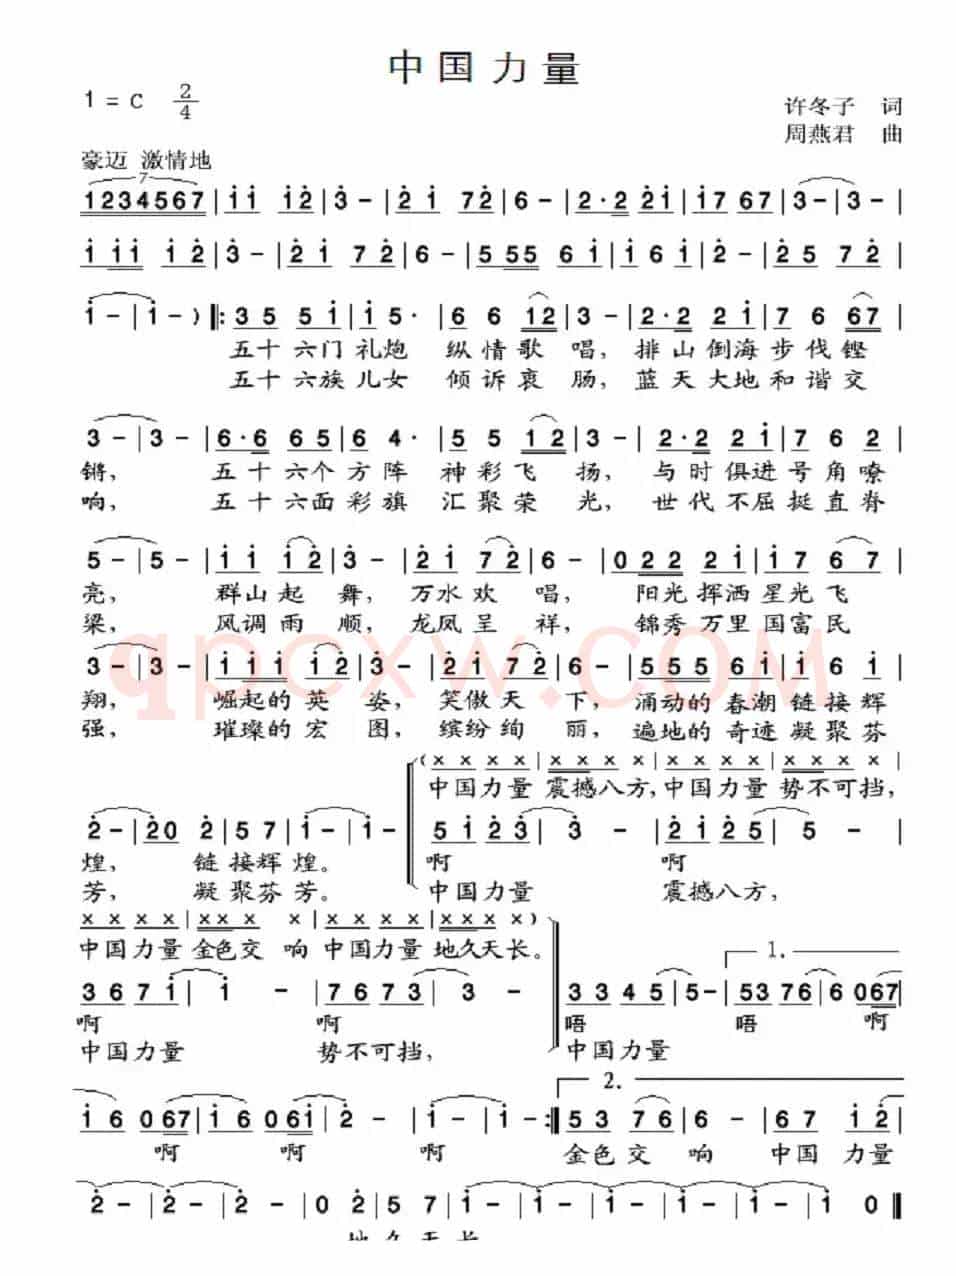 中国力量
1 = C 2/4
许冬子 词
周燕君 曲
豪迈 激情地
7
1234567 | i i i 2 | 3 - | 2 i 7 2 | 6 - | 2 · 2 2 i | i 7 6 7 | 3 - | 3 - |
i i i i 2 | 3 - | 2 i 7 2 | 6 - | 5 5 5 6 i | i 6 i | 2 - | 2 5 7 2 |
i - | i - ) ‖: 3 5 5 i | i 5 · | 6 6 i 2 | 3 - | 2 · 2 2 i | 7 6 6 7 |
五十六门礼炮 纵情歌唱，排山倒海步伐铿
五十六族儿女 倾诉衷肠，蓝天大地和谐交
3 - | 3 - | 6 · 6 6 5 | 6 4 · | 5 5 i 2 | 3 - | 2 · 2 2 i | 7 6 2 |
锵， 五十六个方阵 神彩飞扬，与时俱进号角嘹
响， 五十六面彩旗 汇聚荣光，世代不屈挺直脊
5 - | 5 - | i i i 2 | 3 - | 2 i 7 2 | 6 - | 0 2 2 2 i | i 7 6 7 |
亮， 群山起舞，万水欢唱，阳光挥洒星光飞
梁， 风调雨顺，龙凤呈祥，锦秀万里国富民
qpcxw.COM
3 - | 3 - | i i i i 2 | 3 - | 2 i 7 2 | 6 - | 5 5 5 6 i | i 6 i |
翔， 崛起的英姿，笑傲天下，涌动的春潮链接辉
强， 璀璨的宏图，缤纷绚丽，遍地的奇迹凝聚芬
( × × × × | × × × × × | × × × × | × × × × × |
中国力量 震撼八方，中国力量 势不可挡，
2 - | 2 0 2 | 5 7 | i - | i - | 5 i 2 3 | 3 - | 2 i 2 5 | 5 - |
煌， 链接辉煌。 啊 啊
芳， 凝聚芬芳。 中国力量 震撼八方，
× × × × | × × × × | × × × × | × × × × × )
中国力量 金色交响 中国力量 地久天长。
1.
3 6 7 i | i - | 7 6 7 3 | 3 - | 3 3 4 5 | 5 - | 5 3 7 6 | 6 0 6 7 |
啊 啊 唔 唔 啊
中国力量 势不可挡， 中国力量
2.
i 6 0 6 7 | i 6 0 6 i | 2 - | i - | i - :‖ 5 3 7 6 | 6 - | 6 7 i 2 |
啊 啊 啊 金色交响 中国力量
2 - | 2 - | 2 - | 0 2 | 5 7 | i - | i - | i - | i - | i 0 ‖
地久天长